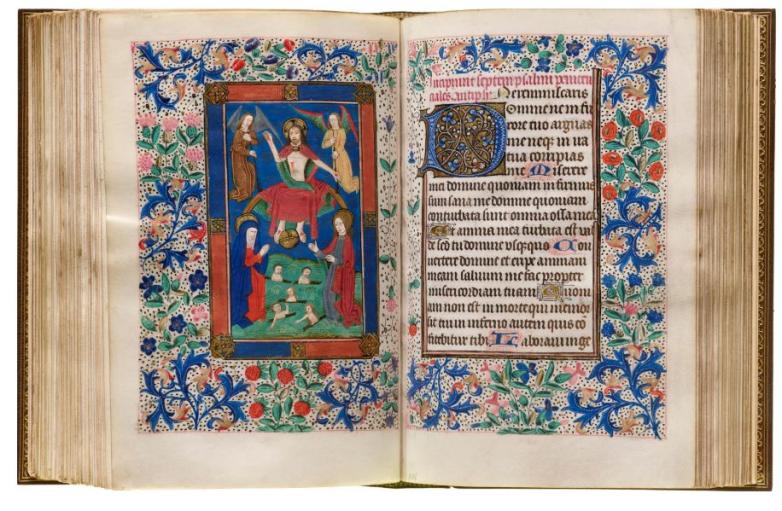 Incipiunt septem psalmi peniten
ciales. Antipho. Ne reminiscaris
Domine ne in fu
rore tuo arguas
me neqz in ira
tua corripias
me Miserere
mei domine quoniam infirmus
sum sana me domine quoniam
conturbata sunt omnia ossa mea
Et anima mea turbata est val
de sed tu domine usqzquo Con
uertere domine et eripe animam
meam saluum me fac propter
misericordiam tuam Quoni
am non est in morte qui memor
sit tui in inferno autem quis co
fitebitur tibi Laboraui in ge